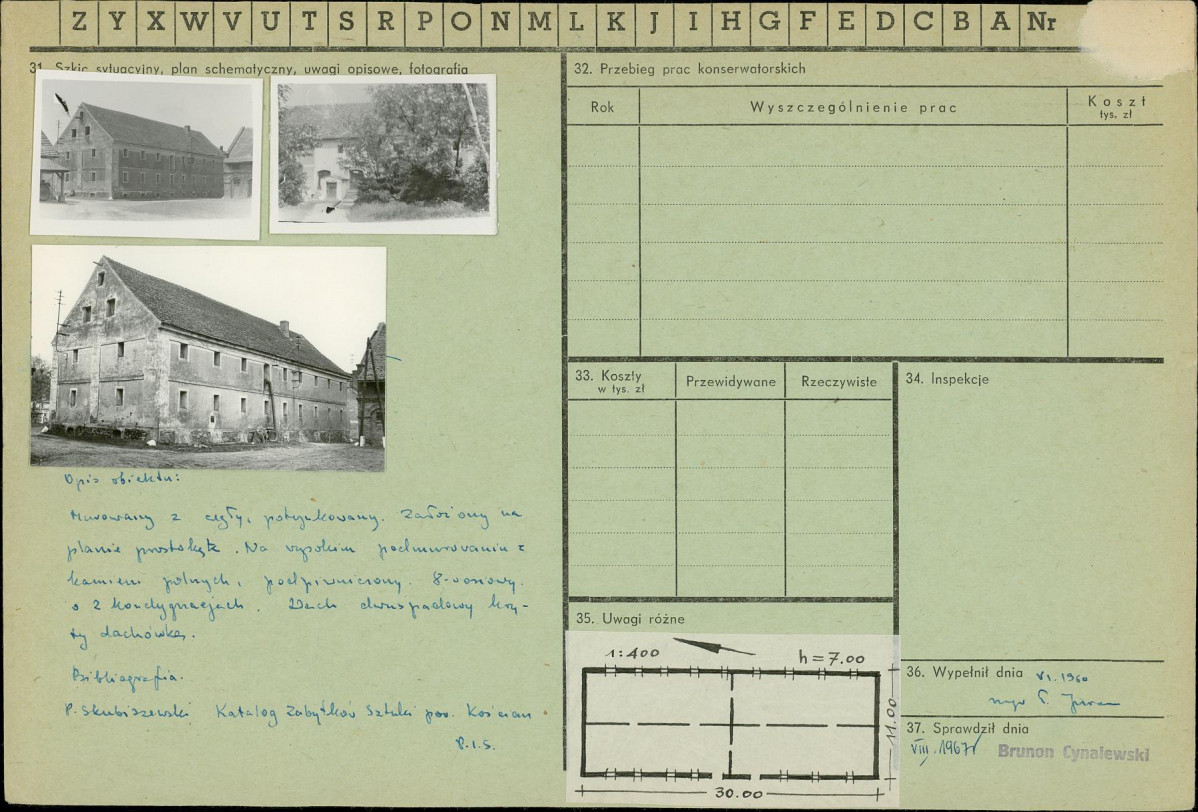 Z Y X W V U T S R P O N M L K J I H G F E D C B A Nr
31. Szkic sytuacyjny, plan schematyczny, uwagi opisowe, fotografia
Opis obiektu:
Murowany z cegły, potynkowany. Założony na
planie prostokąta. Na wysokim podmurowaniu z
kamieni polnych, podpiwniczony. 8-osiowy.
o 2 kondygnacjach. Dach dwuspadowy kry-
ty dachówką.
Bibliografia.
P. Skubiszewski Katalog Zabytków Sztuki pow. Kościan
P.I.S.
32. Przebieg prac konserwatorskich
Rok Wyszczególnienie prac Koszt
tys. zł
33. Koszty
w tys. zł
Przewidywane Rzeczywiste
34. Inspekcje
35. Uwagi różne
1:400 h=7.00
11.00
30.00
36. Wypełnił dnia VI.1960
mgr
37. Sprawdził dnia
VIII.1967r Brunon Cynalewski